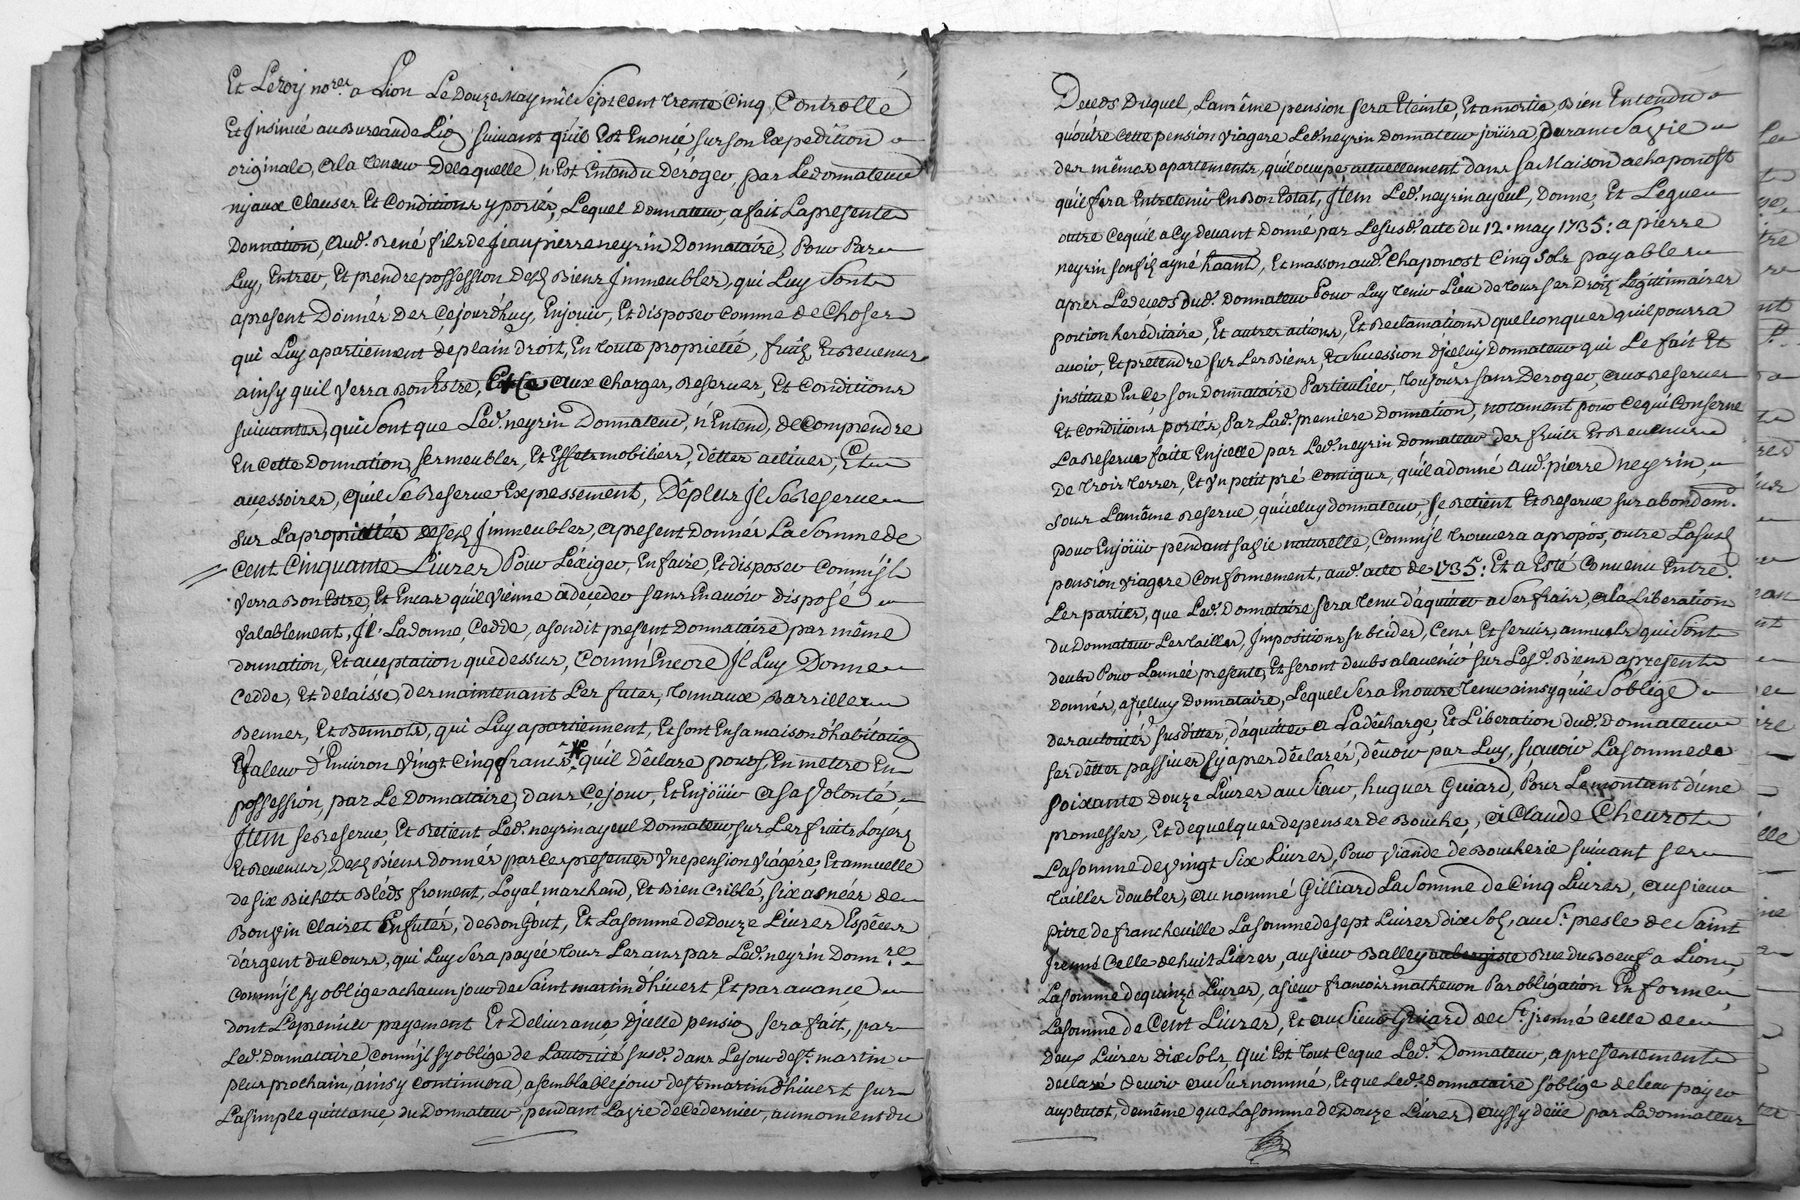 Et Leroy no.res a Lion Le Douze May mil Sept cent trente Cinq, Controllé
Et Insinué au Bureau de Lio suivant qu'il Est Enoncé sur son Expedition
originale, a la teneur De laquelle, n'Est Entendu déroger, par Le donnateur
ny aux Clauses Et Conditions y portés, Lequel Donnateur, a fait La presente
Donnation, aud.t René fils de Jean pierre neyrin Donnataire, Pour Par
Luy, Entrer, Et prendre possession Desd Biens Immeubles, qui Luy Sont
apresent Donnés des Cejourd'huy, En jouir, Et disposer Comme de Choses
qui Luy apartiennent de plain droit, En toute proprieté, fruits, Et Revenus
ainsy quil Verra Bon Estre, aux Charges, Reserves, Et Conditions
suivantes, qui Sont que Led.t neyrin Donnateur, n'Entend, de Comprendre
En Cette Donnation, ses meubles, Et Effets mobiliers, dêttes actives, Et
acessoires, qu'il Se Reserve Expressement, Dêplus Il Se Reserve
sur La proprietés desd Immeubles, apresent Donnés La Somme de
Cent Cinquante Livres Pour L'éxiger, En faire, Et disposer Comm'jl
Verra Bon Estre, Et En cas qu'il Vienne a deçeder sans En avoir disposé
Valablement, Il La donne, Cedde, a sondit present Donnataire par même
donnation, Et acceptation que dessus, Comm'Encore Il Luy Donne
Cedde, Et delaisse, des maintenant Les futes, tonnaux Barrilles
Bennes, Et Bennots, qui Luy apartiennent, Et sont En sa maison d'habitaõn
Valeur d'Environ Vingt Cinq francs qu'il dêclare pour s'En mettre En
possession, par Le Donnataire, dans Cejour, Et En joüir a sa Volonté,
Item se Reserve, Et Retient Led.t neyrin ayeul Donnateur sur Les fruits Loyers
Et Revenus, Desd Biens Donnés par Ces presentes Vne pension Viagére, Et annuelle
de six Bichets Bléds froment, Loyal marchand, Et Bien Criblé, six asnées de
Bon Vin Clairet Enfutés, de Bon Goût, Et La somme de Douze Livres Espêces
d'argent du Cours, qui Luy Sera payée tous Les ans par Led.t neyrin Donn.re
Comm'jl s'y oblige a chacun jour de Saint martin d'hivert, Et par avance
dont Le premier payement Et Delivrance d'jcelle pensio sera fait, par
Led.t Donnataire, Comm'jl s'y oblige de L'autorité susd.t dans Le jour de S.t martin
plus prochain, ainsy Continuera, a semblable jour de S.t martin d'hivert sur
La simple quittance, du Donnateur, pendant La vie de Ce dernier, au moment du
Deceds Duquel, La même pension sera Eteinte, Et amortie, Bien Entendu
qu'outre Cette pension Viagere Led.t neyrin Donnateur joüira, Durant Sa Vie
des mêmes apartements, qu'il occupe, actuellement dans sa Maison a chaponost
qu'il fera Entretenir En Bon Estat, Item Led.t neyrin ayeul, Donne, Et Legue
outre Cequ'il a Cy devant Donné par Le susd.t acte du 12. may 1735: a pierre
neyrin son fils ayné haant, Et masson aud.t Chaponost Cinq Sols payables
apres Le deceds dud.t Donnateur Pour Luy tenir Lieu de tous ses Droits Légitimaires
portion heréditaire, Et autres actions, Et Reclamations quelconques qu'il pourra
avoir, Et pretendre sur Les Biens, Et Succession d'jceluy Donnateur qui Le fait Et
jnstitue En Ce, son Donnataire Particulier, toujours sans Deroger, aux Reserves
Et Conditions portés, Par Lad.t premiere Donnation, notament pour Ce qui Conserne
La Reserve faite En jcelle par Led.t neyrin Donnateur des fruits Et Revenus
De trois terres, Et Vn petit pré Contigus, qu'il a donné aud.t pierre neyrin,
sous La même Reserve, qu'iceluy donnateur, Se Retient Et Reserve sur abondam.t
pour En joüir pendant sa vie naturelle, Comm'jl trouvera a propos, outre La susd
pension Viagere Conformement, aud.t acte de 1735: Et a Esté Convenu Entre
Les parties, que Led.t Donnataire sera tenu d'aquiter a ses frais, a la Liberation
du Donnateur Les tailles, Impositions subsides, Cens Et servis annuels qui Sont
deubs Pour L'année presente, Et seront deubs a l'avenir sur Lesd.t Biens apresent
Donnés, a jcelluy Donnataire, Lequel Sera En outre tenu ainsy qu'il S'oblige
des autoités susdittes, d'aquiter a La decharge, Et Liberation dud.t Donnateur
ses dêttes passives Cy apres dêclarés, dêvoir par Luy, sçavoir La somme de
soixante Douze Livres au Siur, hugues Guiard, Pour Le montant d'une
promesse, Et de quelques depenses de Bouche, a Claude Cheurot
La somme de Vingt Six Livres, Pour Viande de Boucherie suivant ses
tailles doubles, au nommé Gilliard La Somme de Cinq Livres, au sieur
pitre de francheville La somme de sept Livres dix Sols, au S.r presle de Saint
Irenné Celle de huit Livres, au sieur Balley aubergiste Rue du Boeuf a Lion,
La somme de quinze Livres, a sieur francois mathevon Par obligation En forme
La somme de Cent Livres, Et au Sieur Guiard de S.t jrenné Celle de
deux Livres dix Sols, Qui Est tout Ceque Led.t Donnateur, a presentement
declaré devoir au Sus nommé, Et que Led.t Donnataire s'oblige de leur payer
au plutot, de même que La somme de Douze Livres, aussy deüe par Le donnateur